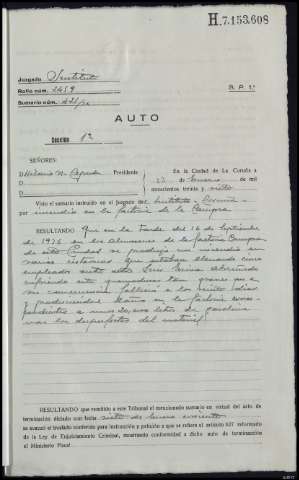 H.7.153.608
Juzgado Instituto
Rollo núm. 2459
Sumario núm.
B. P. 1ª
AUTO
Sección 1ª
SEÑORES:
D. N. Cepeda Presidente
En la Ciudad de La Coruña a
de Enero de mil
novecientos treinta y siete
Visto el sumario instruído en el juzgado del Instituto - Coruña
por incendio en la factoría de la Campsa
RESULTANDO Que en la tarde del 16 de Septiembre
de 1936 en los almacenes de la factoría Campsa
de esta Ciudad se produjo un incendio en
varias cisternas que estaban llenando cinco
empleados
sufriendo este quemaduras tan graves que a
su consecuencia falleció a los siete días
y produciendose daños en la factoria
pendientes a unos 20.000 litros de gasolina
mas los desperfectos del material
RESULTANDO que remitido a este Tribunal el mencionado sumario en virtud del auto de
terminación dictado con fecha siete de Enero corriente
se evacuó el traslado conferido para instrucción y petición a que se refiere el artículo 627 reformado
de la Ley de Enjuiciamiento Criminal, mostrando conformidad a dicho auto de terminación
el Ministerio Fiscal